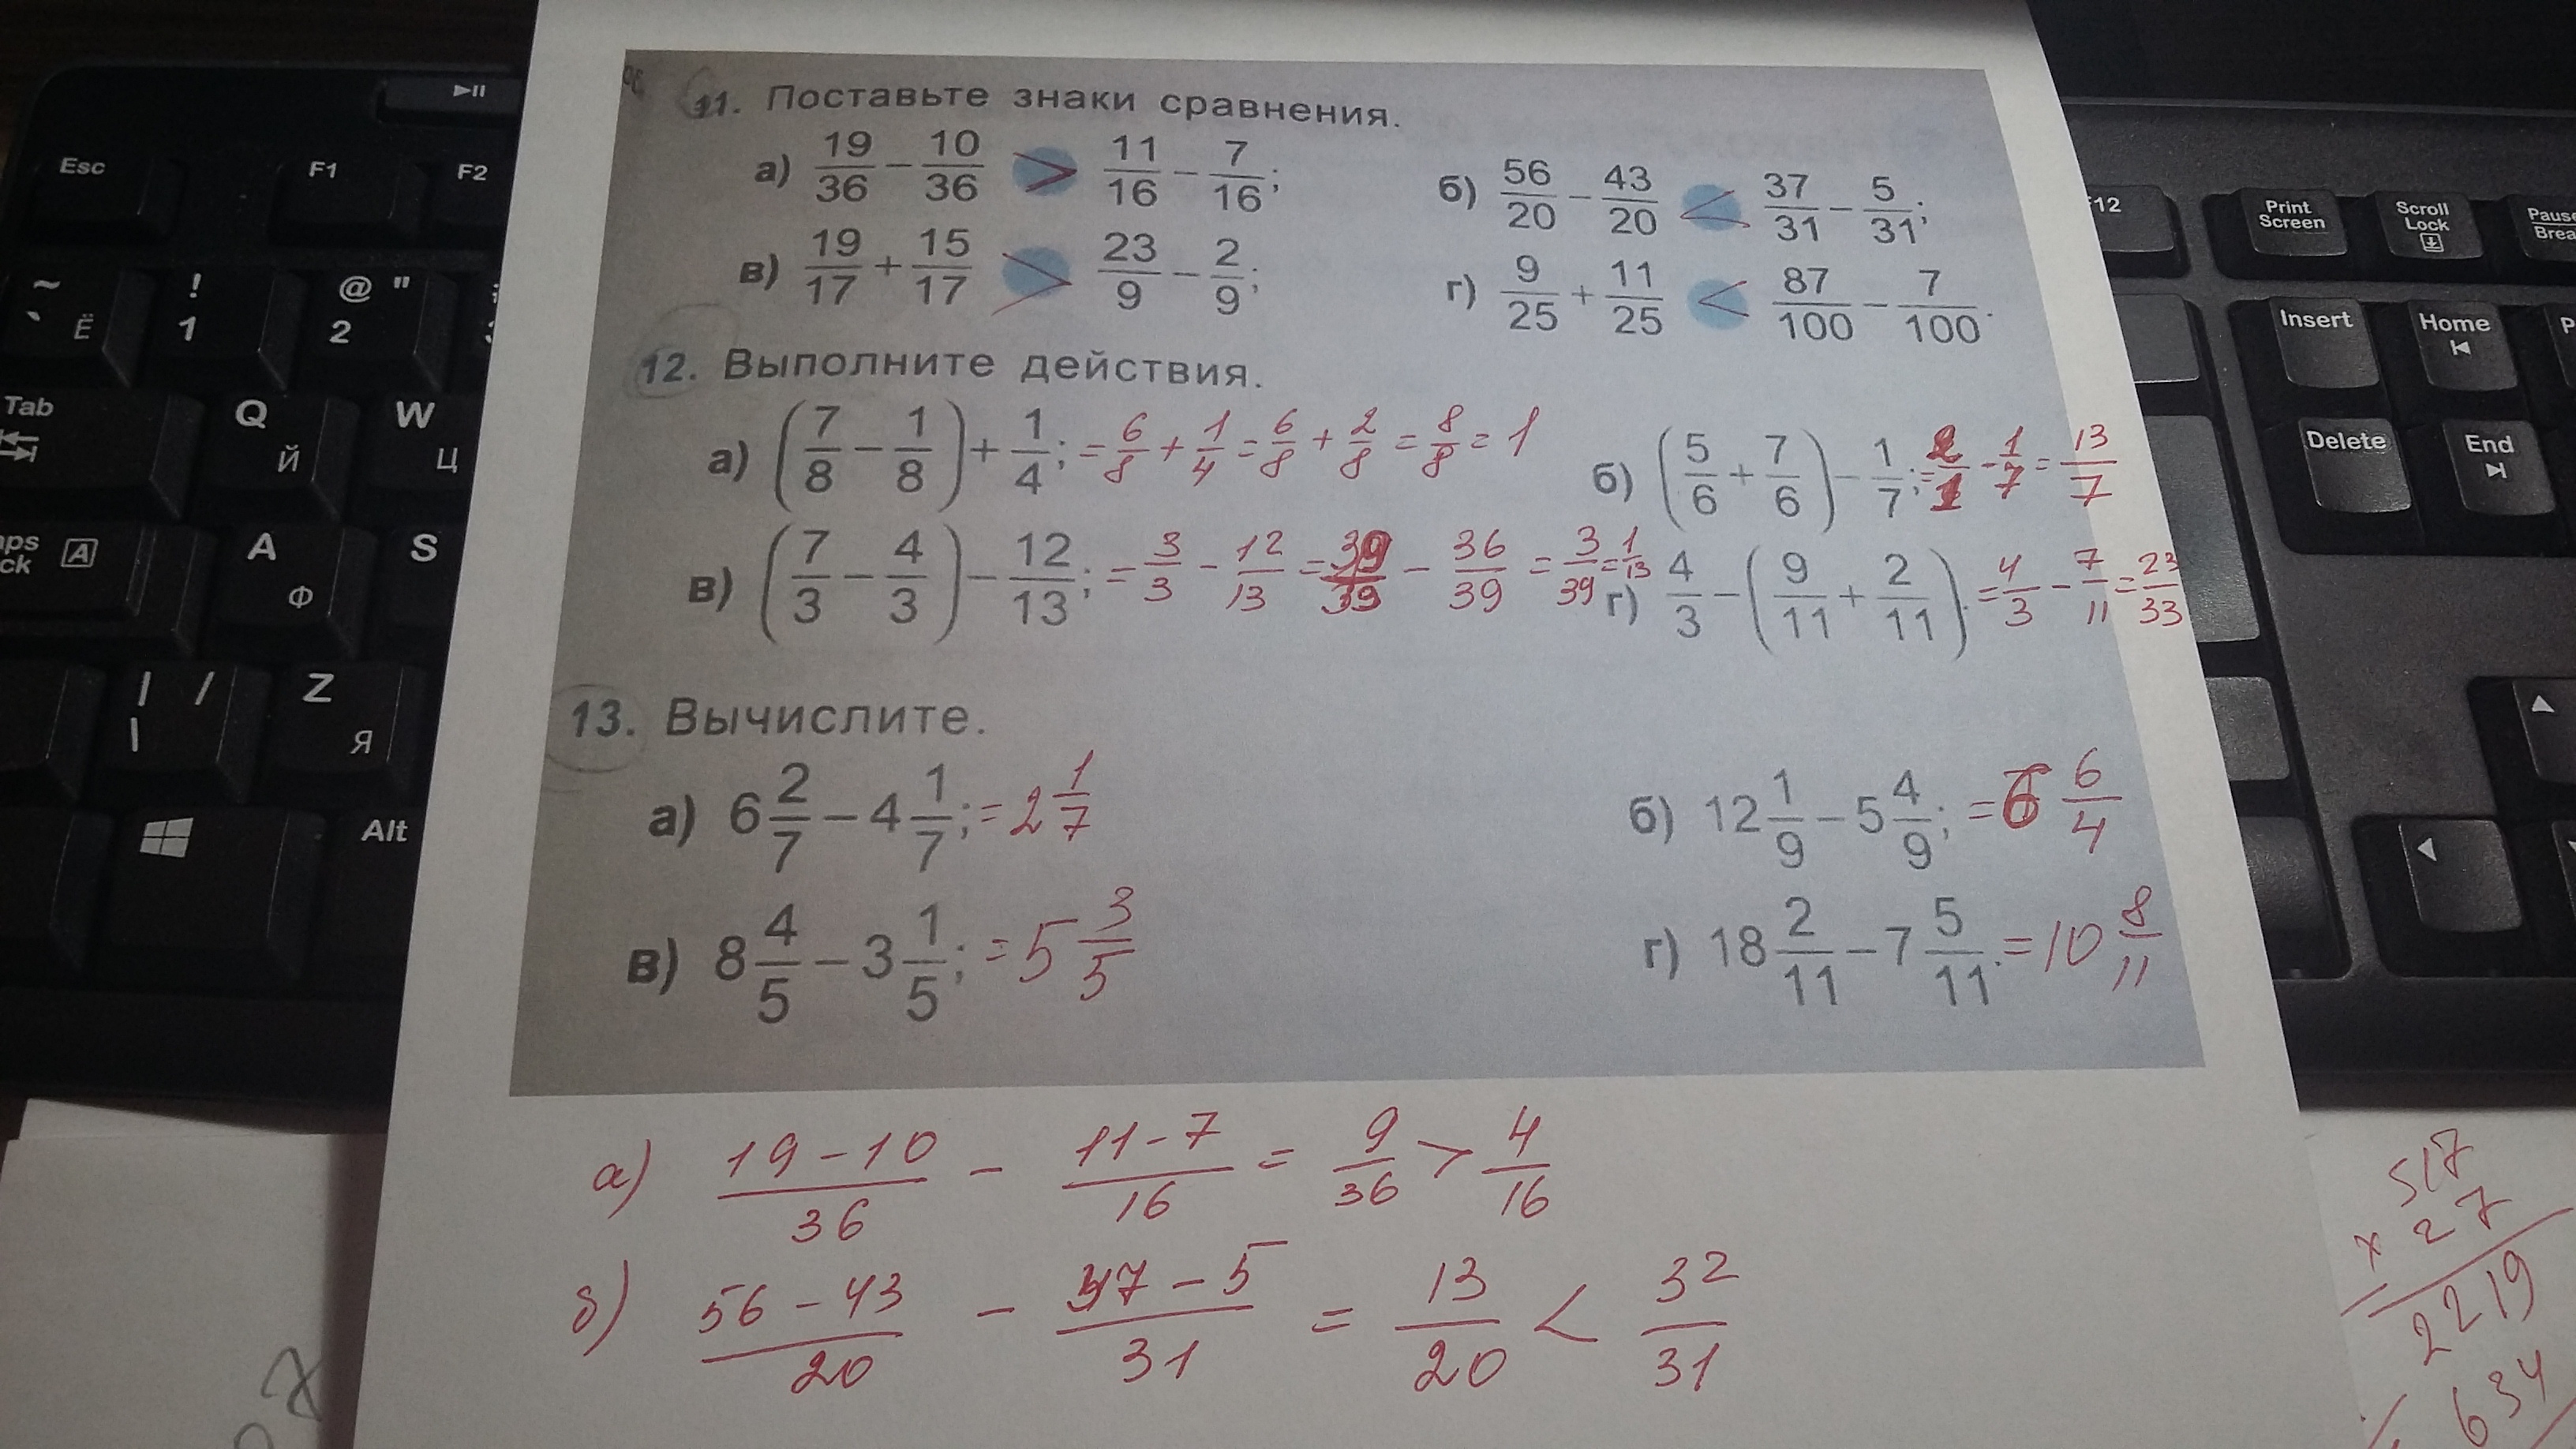 11. Поставьте знаки сравнения.
а) 19/36 − 10/36 > 11/16 − 7/16;
б) 56/20 − 43/20 < 37/31 − 5/31;
в) 19/17 + 15/17 > 23/9 − 2/9;
г) 9/25 + 11/25 < 87/100 − 7/100.
12. Выполните действия.
а) (7/8 − 1/8) + 1/4; = 6/8 + 1/4 = 6/8 + 2/8 = 8/8 = 1
б) (5/6 + 7/6) − 1/7; = 2/1 − 1/7 = 13/7
в) (7/3 − 4/3) − 12/13; = 3/3 − 12/13 = 39/39 − 36/39 = 3/39 = 1/13
г) 4/3 − (9/11 + 2/11). = 4/3 − 7/11 = 23/33
13. Вычислите.
а) 6 2/7 − 4 1/7; = 2 1/7
б) 12 1/9 − 5 4/9; = 6 6/4
в) 8 4/5 − 3 1/5; = 5 3/5
г) 18 2/11 − 7 5/11. = 10 8/11
а) 19 − 10/36 − 11 − 7/16 = 9/36 > 4/16
б) 56 − 43/20 − 37 − 5/31 = 13/20 < 32/31
517
× 27
2219
634
Esc
F1
F2
F12
Print Screen
Scroll Lock
~ ` Ё
! 1
@ " 2
Insert
Home
Tab
Q Й
W Ц
Delete
End
A
A Ф
S
| / \
Z Я
Alt